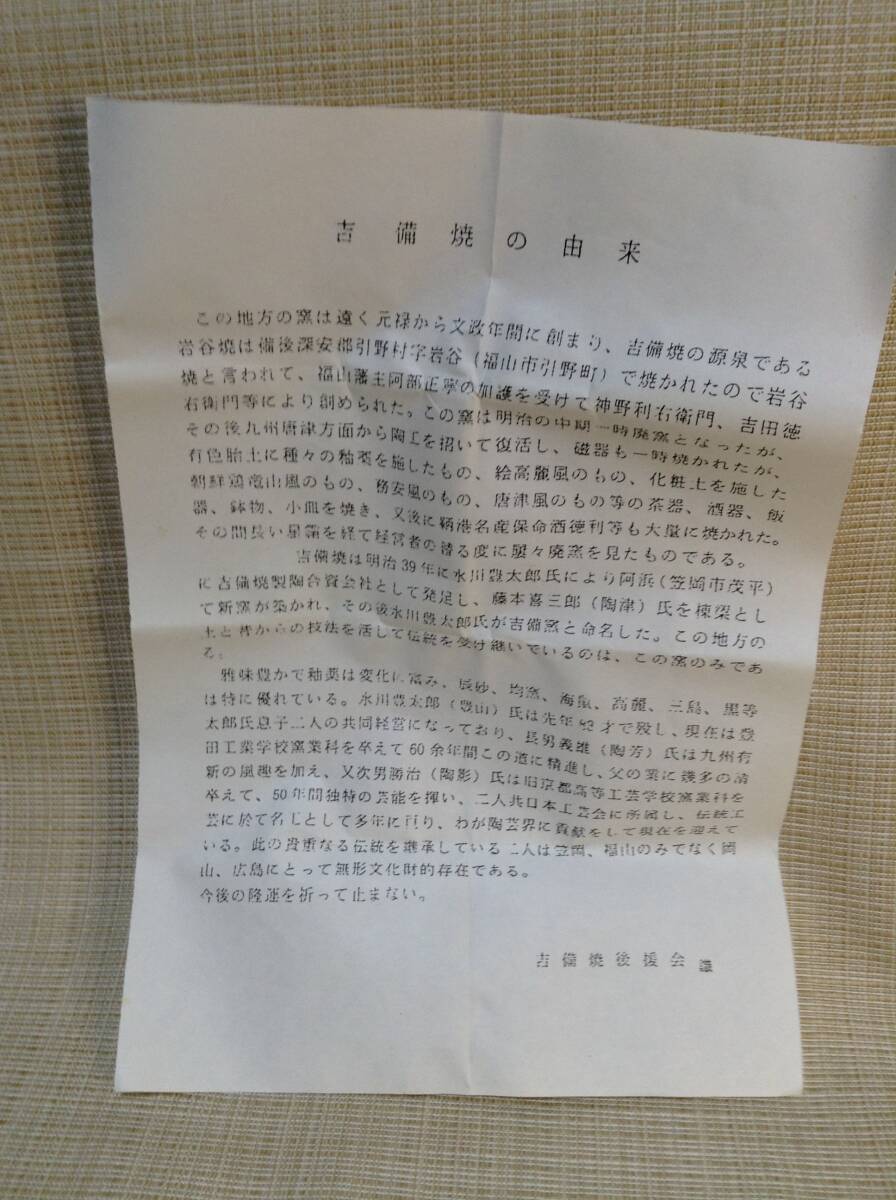 吉備焼の由来
この地方の窯は遠く元禄から文政年間に創まり、吉備焼の源泉である
岩谷焼は備後深安郡引野村字岩谷(福山市引野町)で焼かれたので岩谷
焼と言われて、福山藩主阿部正寧の加護を受けて神野利右衛門、吉田徳
右衛門等により創められた。この窯は明治の中期一時廃窯となったが、
その後九州唐津方面から陶工を招いて復活し、磁器も一時焼かれたが、
有色胎土に種々の釉薬を施したもの、絵高麗風のもの、化粧土を施した
朝鮮鶏竜山風のもの、務安風のもの、唐津風のもの等の茶器、酒器、飯
器、鉢物、小皿を焼き、又後に鞆港名産保命酒徳利等も大量に焼かれた。
その間長い星霜を経て経営者の替る度に屡々廃窯を見たものである。
吉備焼は明治39年に水川豊太郎氏により阿浜(笠岡市茂平)
に吉備焼製陶合資会社として発足し、藤本喜三郎(陶津)氏を棟梁とし
て新窯が築かれ、その後水川豊太郎氏が吉備窯と命名した。この地方の
土と昔からの技法を活して伝統を受け継いでいるのは、この窯のみであ
る。
雅味豊かで釉薬は変化に富み、辰砂、均窯、海鼠、高麗、三島、黒等
は特に優れている。水川豊太郎(豊山)氏は先年 才で歿し、現在は豊
太郎氏息子二人の共同経営になっており、長男義雄(陶芳)氏は九州有
田工業学校窯業科を卒えて60余年間この道に精進し、父の業に幾多の清
新の風趣を加え、又次男勝治(陶影)氏は旧京都高等工芸学校窯業科を
卒えて、50年間独特の芸能を揮い、二人共日本工芸会に所属し、伝統工
芸に於て名工として多年に亘り、わが陶芸界に貢献をして現在を迎えて
いる。此の貴重なる伝統を継承している二人は笠岡、福山のみでなく岡
山、広島にとって無形文化財的存在である。
今後の隆運を祈って止まない。
吉備焼後援会